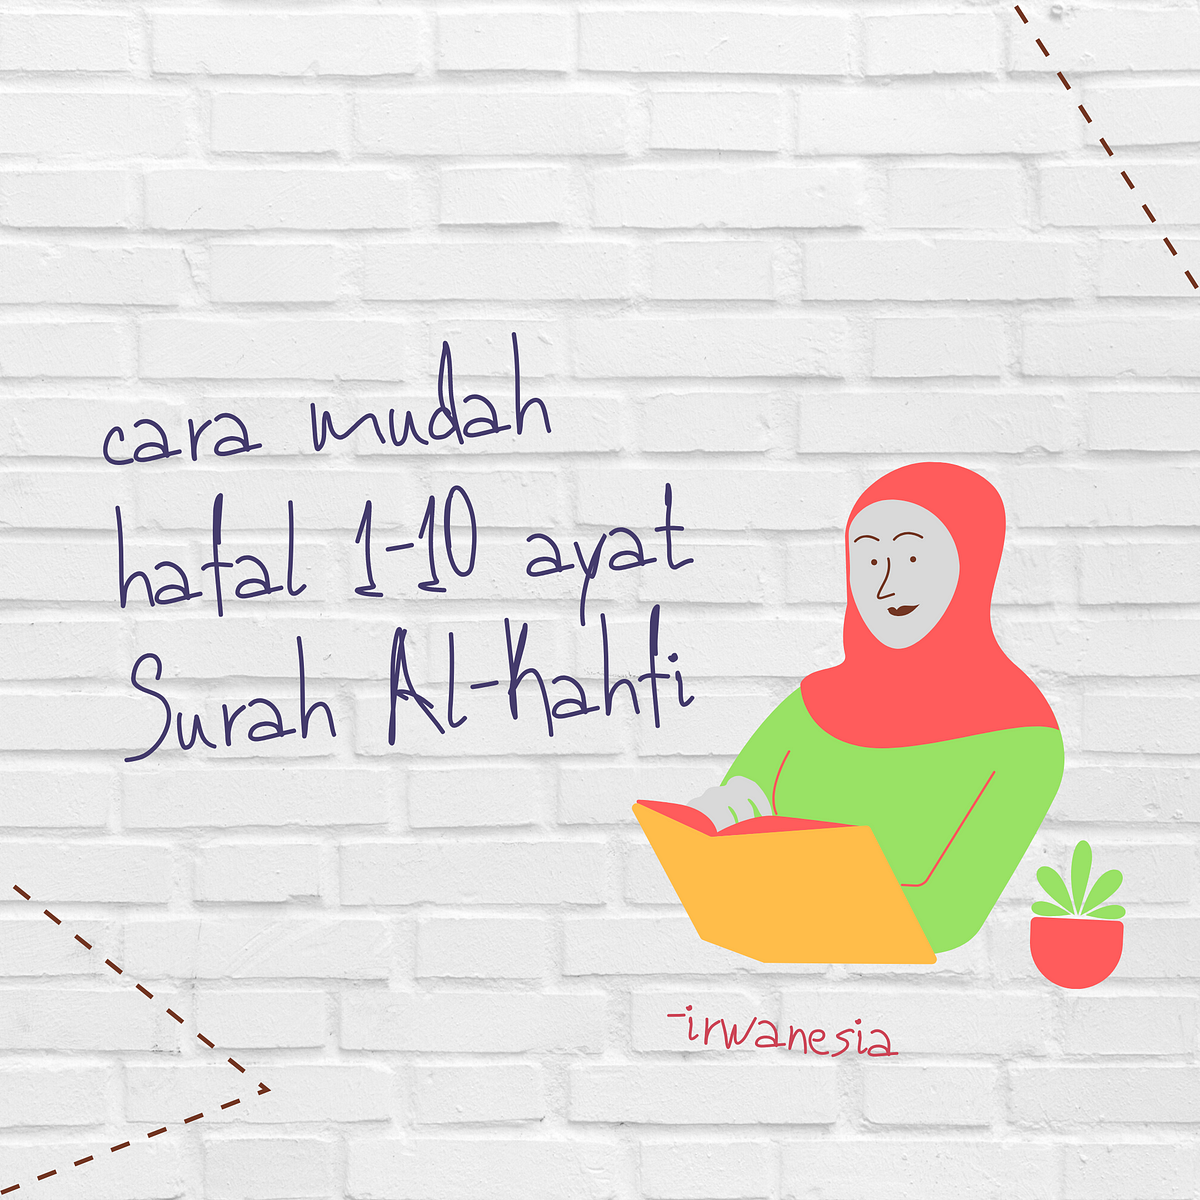 cara mudah
hafal 1-10 ayat
Surah Al-Kahfi
-irwanesia